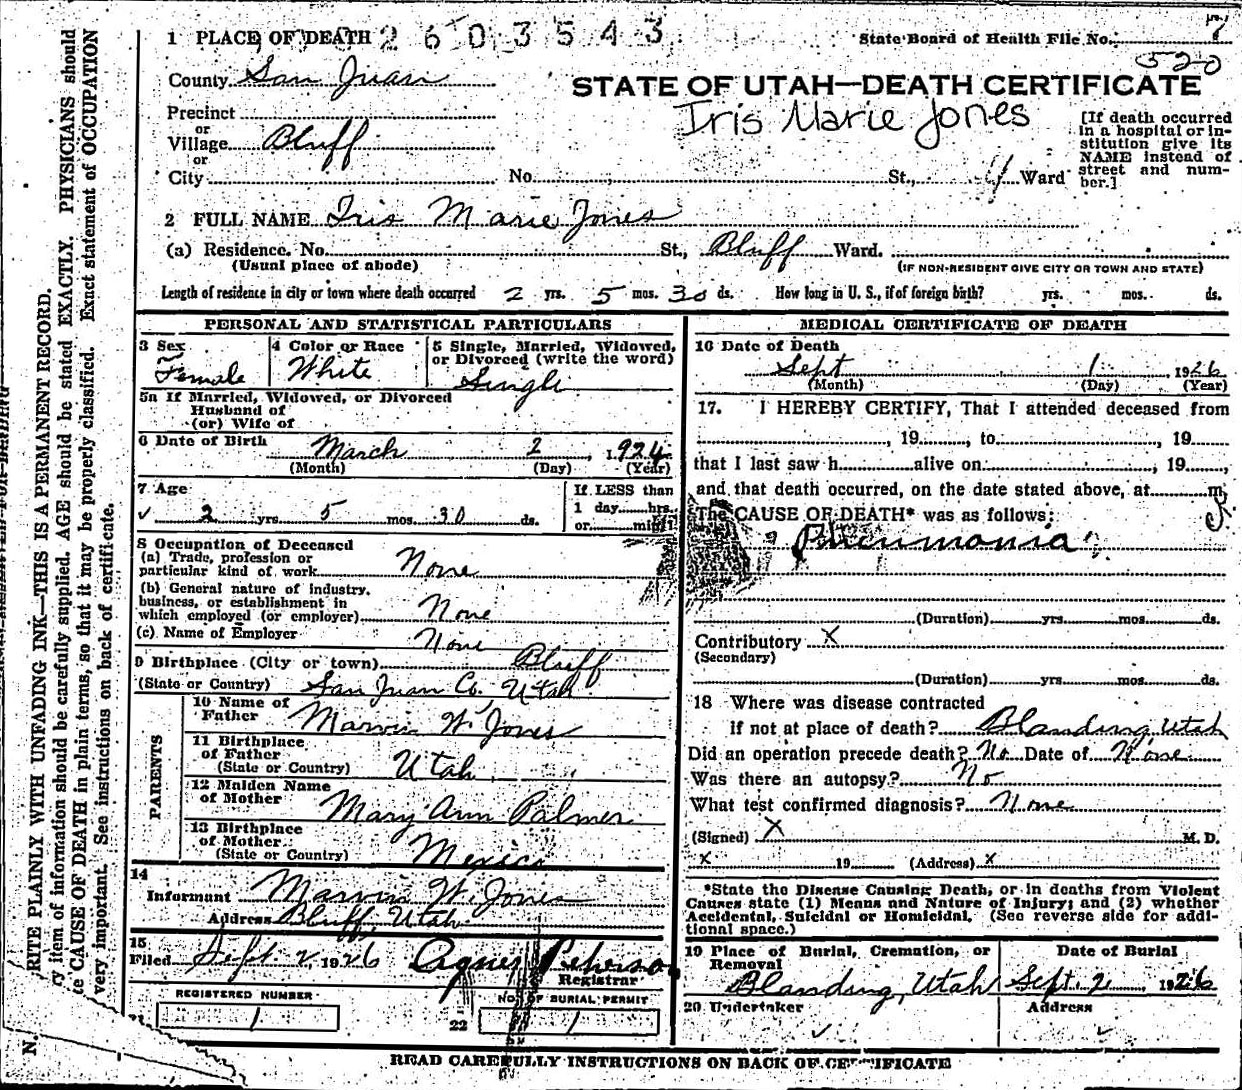 1 PLACE OF DEATH 2603543
State Board of Health File No. 7
520
County San Juan
STATE OF UTAH—DEATH CERTIFICATE
Iris Marie Jones
Precinct
or
Village Bluff
or
City No. St., 4 Ward
[If death occurred
in a hospital or in-
stitution give its
NAME instead of
street and num-
ber.]
2 FULL NAME Iris Marie Jones
(a) Residence. No. St., Bluff Ward.
(Usual place of abode) (IF NON-RESIDENT GIVE CITY OR TOWN AND STATE)
Length of residence in city or town where death occurred 2 yrs. 5 mos. 30 ds. How long in U. S., if of foreign birth? yrs. mos. ds.
PERSONAL AND STATISTICAL PARTICULARS
3 Sex
Female
4 Color or Race
White
5 Single, Married, Widowed,
or Divorced (write the word)
Single
5a If Married, Widowed, or Divorced
Husband of
(or) Wife of
6 Date of Birth March 2, 1924
(Month) (Day) (Year)
7 Age
2 yrs. 5 mos. 30 ds.
If LESS than
1 day hrs.
or min.
8 Occupation of Deceased
(a) Trade, profession or
particular kind of work None
(b) General nature of industry,
business, or establishment in
which employed (or employer) None
(c) Name of Employer None
9 Birthplace (City or town) Bluff
(State or Country) San Juan Co. Utah
PARENTS
10 Name of
Father Marvin W. Jones
11 Birthplace
of Father
(State or Country) Utah
12 Maiden Name
of Mother Mary Ann Palmer
13 Birthplace
of Mother
(State or Country) Mexico
14
Informant Marvin W. Jones
Address Bluff, Utah
15
Filed Sept. 2, 1926 Agnes Peterson
Registrar
REGISTERED NUMBER
1
22
NO. OF BURIAL PERMIT
1
MEDICAL CERTIFICATE OF DEATH
16 Date of Death
Sept 1 1926
(Month) (Day) (Year)
17. I HEREBY CERTIFY, That I attended deceased from
, 19 , to , 19
that I last saw h alive on , 19 ,
and that death occurred, on the date stated above, at m.
The CAUSE OF DEATH* was as follows:
Pneumonia
(Duration) yrs. mos. ds.
Contributory X
(Secondary)
(Duration) yrs. mos. ds.
18 Where was disease contracted
If not at place of death? Blanding, Utah
Did an operation precede death? No Date of None
Was there an autopsy? No
What test confirmed diagnosis? None
(Signed) X M. D.
X 19 (Address) X
*State the Disease Causing Death, or in deaths from Violent
Causes state (1) Means and Nature of Injury; and (2) whether
Accidental, Suicidal or Homicidal. (See reverse side for addi-
tional space.)
19 Place of Burial, Cremation, or
Removal
Blanding, Utah
Date of Burial
Sept. 2 1926
20 Undertaker Address
READ CAREFULLY INSTRUCTIONS ON BACK OF CERTIFICATE
N. RITE PLAINLY WITH UNFADING INK—THIS IS A PERMANENT RECORD.
ry item of information should be carefully supplied. AGE should be stated EXACTLY. PHYSICIANS should
te CAUSE OF DEATH in plain terms, so that it may be properly classified. Exact statement of OCCUPATION
very important. See instructions on back of certificate.